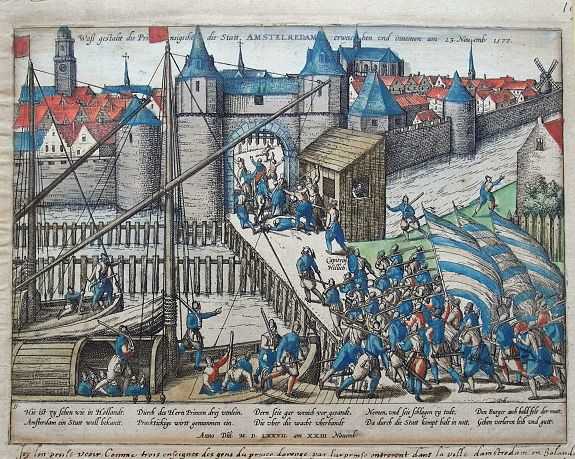 Wass gestalt die Prinzingische die Statt, AMSTELREDAM, erwischben und innemen am 23. Nouemb. 1577.
Capiteyn
Hellich
Hie ist zu sehen wie in Hollandt
Amsterdam ein Statt woll bekantt.
Durch des Hern Princen drei venlein
Practickige wirt genummen ein.
Dern seie gar wenich vor gesandt.
Die vber die wacht vberhandt
Nemen, und seie schlagen zu todt.
Da durch die Statt kompt balt in nott.
Doe Burger auch bald felt der mutt,
Geben verloren lib und gutt.
Anno Dñi M. D. LXXVII. am XXIII Nouemb.
icy lon peult veoir Comme trois enseignes des gens du prince dorenge par surprinse entrerent dans la ville damstredam en Holand